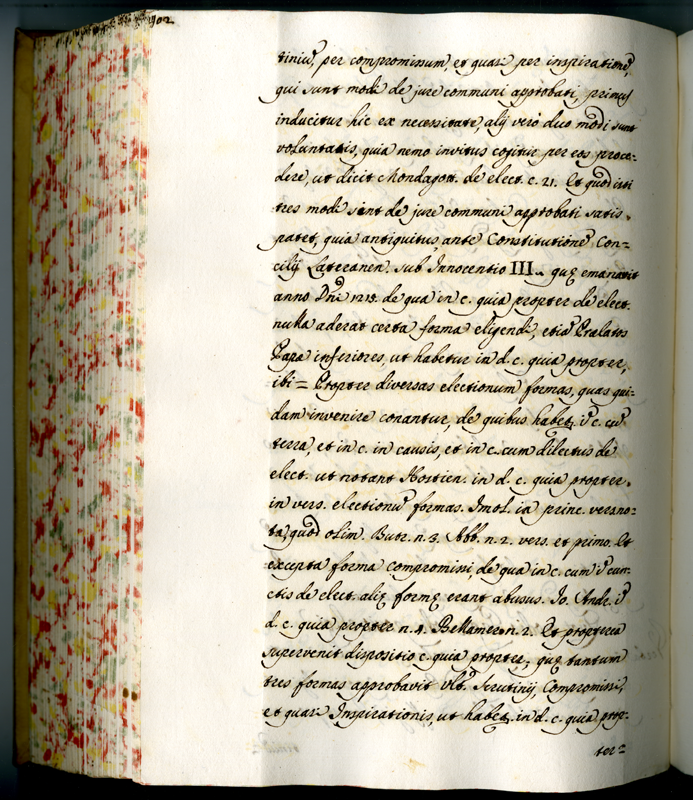 902
tiniũ, per compromissum, et quasi per inspirationẽ,
qui sunt modi de jure communi approbati, primus
inducitur hic ex necessitate, alij verò duo modi sunt
voluntatis, quia nemo invitus cogitur per eos proce=
dere, ut dicit Mondagott. de elect. c. 21. Et quod isti
tres modi sint de jure communi approbati satis
patet, quia antiquitus, ante Constitutionẽ Con=
cilij Lateranen. sub Innocentio III. quę emanavit
anno Dñi 1215. de qua in c. quia propter de elect.
nulla aderat certa forma eligendi, etiã Prælatos
Papa inferiores, ut habetur in d. c. quia propter,
ibi = Propter diversas electionum formas, quas qui=
dam invenire conantur, de quibus habet. ĩ c. cũ
terra, et in c. in causis, et in c. cum dilectus de
elect. ut notant Hostien. in d. c. quia propter.
in vers. electionũ formas. Imol. in princ. vers. no=
ta, quod olim. Butr. n. 3. Abb. n. 2. vers. et primo. Et
excepta forma compromissi, de qua in c. cum ĩ cun=
ctis de elect. alię formę erant abusus. Jo. Andr. ĩ
d. c. quia propter n. 4. Bellamera n. 2. Et propterea
supervenit dispositio c. quia propter, quę tantum
tres formas approbavit vłt. Scrutinij Compromissi,
et quasi Inspirationis, ut habet. in d. c. quia prop=
ter=